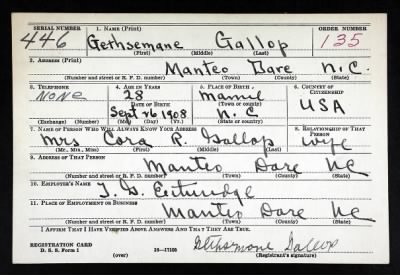 SERIAL NUMBER 1. NAME (Print) ORDER NUMBER
446 Gethsemane Gallop 135
(First) (Middle) (Last)
2. ADDRESS (Print)
Manteo Dare N.C.
(Number and street or R. F. D. number) (Town) (County) (State)
3. TELEPHONE 4. AGE IN YEARS 5. PLACE OF BIRTH 6. COUNTRY OF CITIZENSHIP
None 28
DATE OF BIRTH (Town or county)
Sept 26 1908 N.C. USA
(Exchange) (Number) (Mo.) (Day) (Yr.) (State or country)
7. NAME OF PERSON WHO WILL ALWAYS KNOW YOUR ADDRESS 8. RELATIONSHIP OF THAT PERSON
Mrs Cora P. Gallop Wife
(Mr., Mrs., Miss) (First) (Middle) (Last)
9. ADDRESS OF THAT PERSON
Manteo Dare NC
(Number and street or R. F. D. number) (Town) (County) (State)
10. EMPLOYER'S NAME
Etheridge
11. PLACE OF EMPLOYMENT OR BUSINESS
Manteo Dare NC
(Number and street or R. F. D. number) (Town) (County) (State)
I AFFIRM THAT I HAVE VERIFIED ABOVE ANSWERS AND THAT THEY ARE TRUE.
REGISTRATION CARD
D. S. S. Form 1 (over) 16—17105 Gethsemane Gallop
(Registrant's signature)